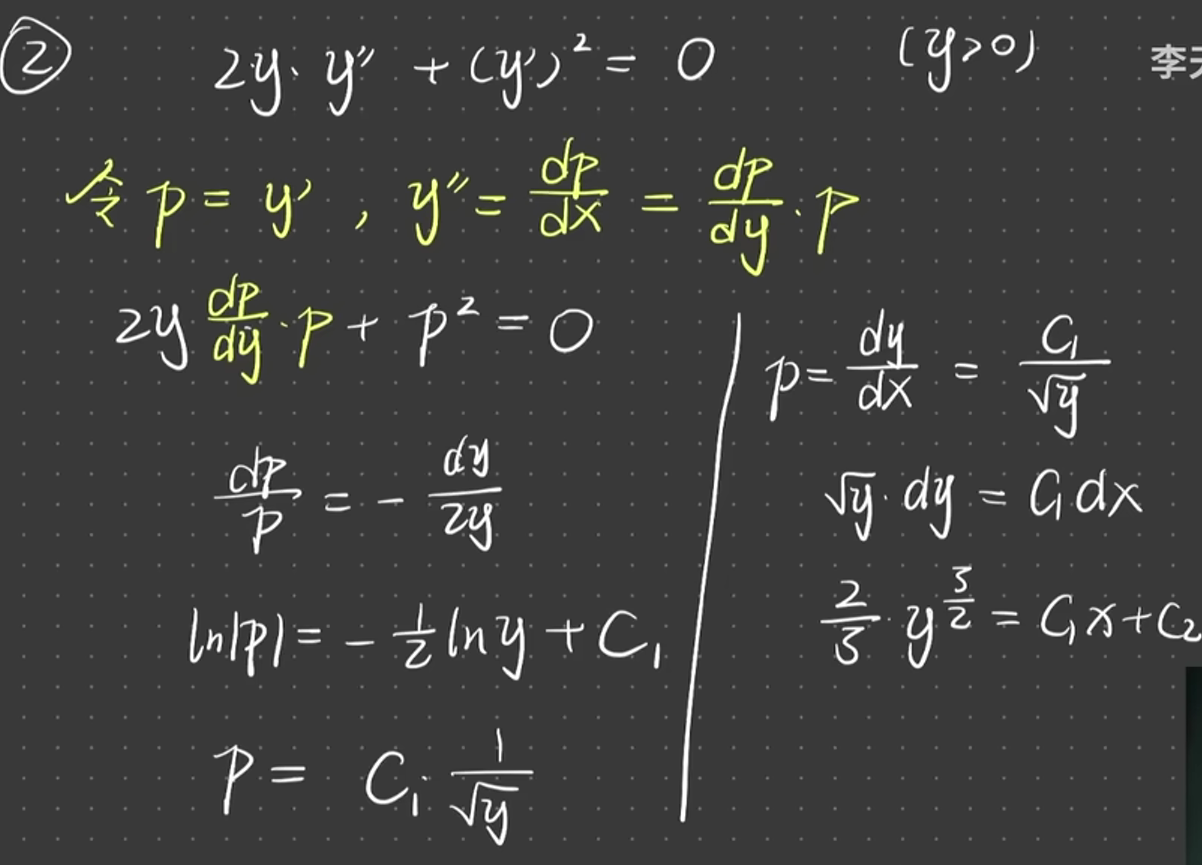 ② 2y·y″ + (y′)² = 0 (y>0)
李天
令 p = y′ , y″ = dp/dx = dp/dy · p
2y dp/dy · p + p² = 0
dp/p = - dy/2y
ln|p| = - 1/2 ln y + C₁
p = C₁ · 1/√y
p = dy/dx = C₁/√y
√y · dy = C₁dx
2/3 · y^(3/2) = C₁x + C₂